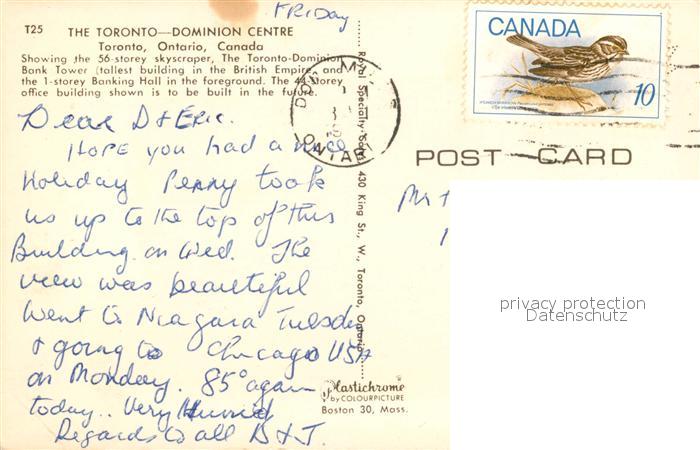 FRIDAY
T25 THE TORONTO—DOMINION CENTRE
Toronto, Ontario, Canada
Showing the 56-storey skyscraper, The Toronto-Dominion
Bank Tower (tallest building in the British Empire, and
the 1-storey Banking Hall in the foreground. The 44-storey
office building shown is to be built in the future.
Dear D & Eric.
HOPE you had a nice
Holiday Penny took
us up to the top of this
Building on Wed. The
view was beautiful
Went to Niagara Tuesday
& going to Chicago USA
on Monday. 85° again
today.. Very Humid
Regards to all B & J.
Royal Specialty Sales 430 King St., W., Toronto, Ontario
Plastichrome
by COLOURPICTURE
Boston 30, Mass.
ONTARIO
CANADA
10
POST CARD
Mr +
privacy protection
Datenschutz